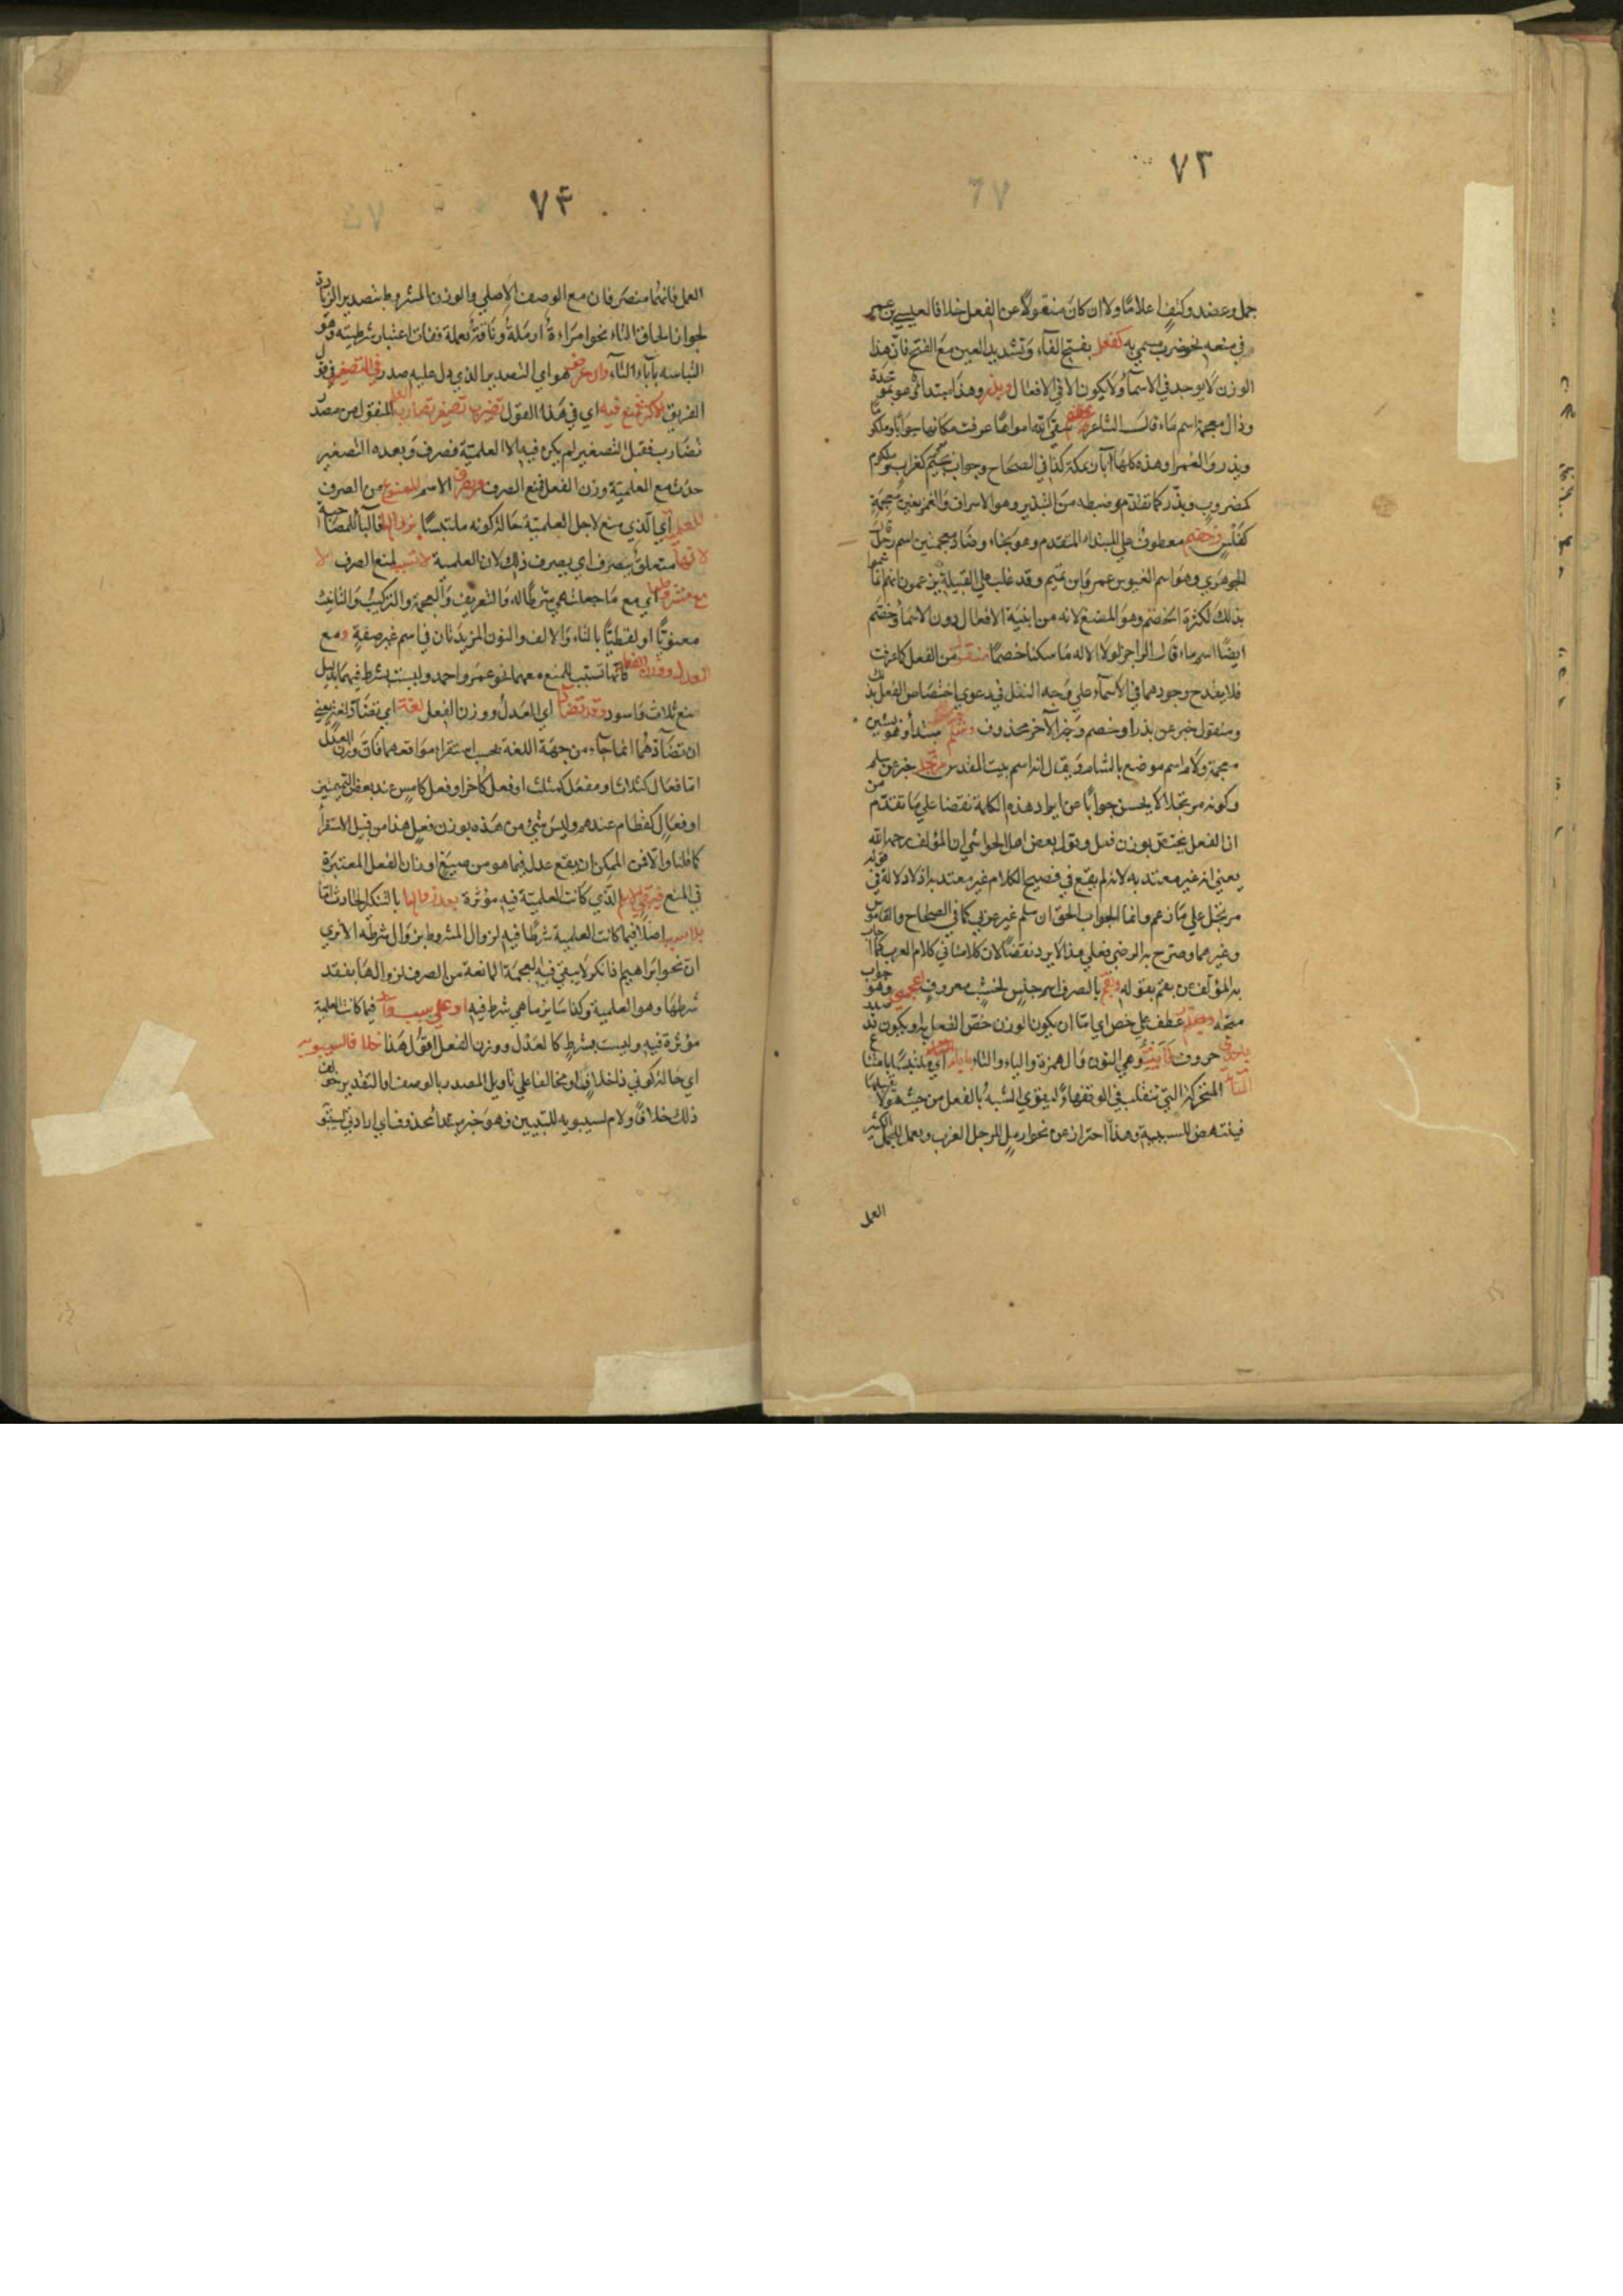 ٧٣
جمل وعضد وكتف اعلامًا ولا ان كان منقولًا عن الفعل خلافا لعيسى بن عمر
في منعه نحو ضرب سمي به كفعل بفتح الفاء وتشديد العين مع الفتح فان هذا
الوزن لا يوجد في الاسماء ولا يكون الا في الافعال وبذر وهذا مبتداء وهو بموحدة
وذال معجمة اسم ماء قال الشاعر سقى الله امواها عرفت مكانها جرابا وملكوما
وبذر والغمرا وهذه كلها آبار بمكة كذا في الصحاح وجراب بجيم كغراب وملكوم
كمضروب وبذر كما تقدم وضبطه من التبذير وهو الاسراف والغمر بغين معجمة
كفلس وخضم معطوف على المبتداء المتقدم وهو بخاء وضاد معجمتين اسم رجل قال
الجوهري وهو اسم العنبر بن عمرو بن تميم وقد غلب على القبيلة يزعمون انهم انما سموا
بذلك لكثرة الخضم وهو المضغ لانه من ابنية الافعال دون الاسماء وخضم
ايضًا اسم ماء قال الراجز لولا الاله ما سكنا خضما منقول من الفعل كما عرفت
فلا يقدح وجودهما في الاسماء على وجه النقل في دعوى اختصاص الفعل بذلك
ومنقول خبر عن بذر او خضم وخبر الآخر محذوف وشلم مبتدأ وهو بشين
معجمة ولام اسم موضع بالشام ويقال انه اسم بيت المقدس مرتجل خبر عن شلم
وكونه مرتجلا لا يحسن جوابًا عن ايراد هذه الكلمة نقضا على ما تقدم من
ان الفعل يختص بوزن فعل وقول بعض اهل الحواشي ان المؤلف رحمه الله
يعني انه غير معتد به لانه لم يقع في فصيح الكلام غير معتد به اذ لا دلالة في قوله
مرتجل على ما زعم وانما الجواب الحق ان شلم غير عربي كما في الصحاح والقاموس
وغيرهما وصرح به الرضي فعلى هذا لا يرد نقضًا لان كلامنا في كلام العرب كما اجاب
به المؤلف عن بقم بقوله وبقم بالصرف اسم جنس لخشب معروف اعجمي وهو جواب
متجه او يصدر عطف على خص اي اما ان يكون الوزن خص الفعل به او يكون قد صدر
باحدى حروف نأيت وهي النون والهمزة والياء والتاء اي ملتبسًا بامتناع
التاء المتحركة التي تنقلب في الوقف هاءً ليقوى الشبه بالفعل من حيث هو لا يقبلها
فينتهض للسببية وهذا احتراز عن نحو ارمل للرجل العزب ويعمل للجمل الكثير
العمل
٧٤
العمل فانهما منصرفان مع الوصف الاصلي والوزن المشروط بتصدير الزيادة
لجواز الحاق التاء نحو امراءة ارملة وناقة يعملة ففات اعتبار شرطيته وهو
التباسه باباء التاء وان عرض هو اي التصدير الذي دل عليه صدر في التصغير في قول
الفريق الاكثر تمنع فيه اي في هذا القول تضيرب تصغير تضارب العلم المنقول من مصدر
تضارب فقبل التصغير لم يكن فيه الا العلمية فصرف وبعده التصغير
حدث مع العلمية وزن الفعل فمنع الصرف ويصرف الاسم الممنوع من الصرف
للعلمية اي الذي منع لاجل العلمية حالة كونه ملتبسًا بزوالها فالباء للمصاحبة
لا لها متعلق بيصرف اي يصرف ذلك لان العلمية لا تسبب لمنع الصرف الا
مع مشروطها اي مع ما جعلت هي شرطًا له والتعريف والعجمة والتركيب والتانيث
معنويًا او لفظيًا بالتاء والالف والنون المزيدتان في اسم غير صفة ومع
العدل ووزن الفعل فانها تسبب المنع معهما نحو عمر واحمد وليست بشرط فيهما بدليل
منع ثلاث واسود وقد تضادا اي العدل ووزن الفعل لغة اي تضادًا لغةً يعني
ان تضادهما انما جاء من جهة اللغة بحسب استقراء مواقعهما فان وزن العدل
اما فعال كثلاث او مفعل كمثلث او فعل كأخر او فعل كامس عند بعض التميميين
او فعال كقطام عندهم وليس شيء من هذه بوزن فعل هذا من قبيل الاستقراء
كما قلنا والا فمن الممكن ان يقع عدل فيما هو من صيغ اوزان الفعل المعتبرة
في المنع فيبقى الاسم الذي كانت العلمية فيه مؤثرة بعد زوالها بالتنكير الحادث اما
بلا سبب اصلًا فيما كانت العلمية شرطًا فيه لزوال المشروط بزوال شرطه الا ترى
ان نحو ابراهيم اذا نكر لا يبقى فيه العجمة المانعة من الصرف لزوالها بفقد
شرطها وهو العلمية وكذا سائر ما هي شرط فيه او على سبب واحد فيما كانت العلمية
مؤثرة فيه وليست بشرط كالعدل ووزن الفعل اقول هذا خلافا لسيبويه
اي حالة كوني ذا خلاف او مخالفا على تاويل المصدر بالوصف او التقدير خولف
ذلك خلافًا ولام لسيبويه للتبيين وهو خبر مبتدا محذوف اي ارادتي لسيبويه